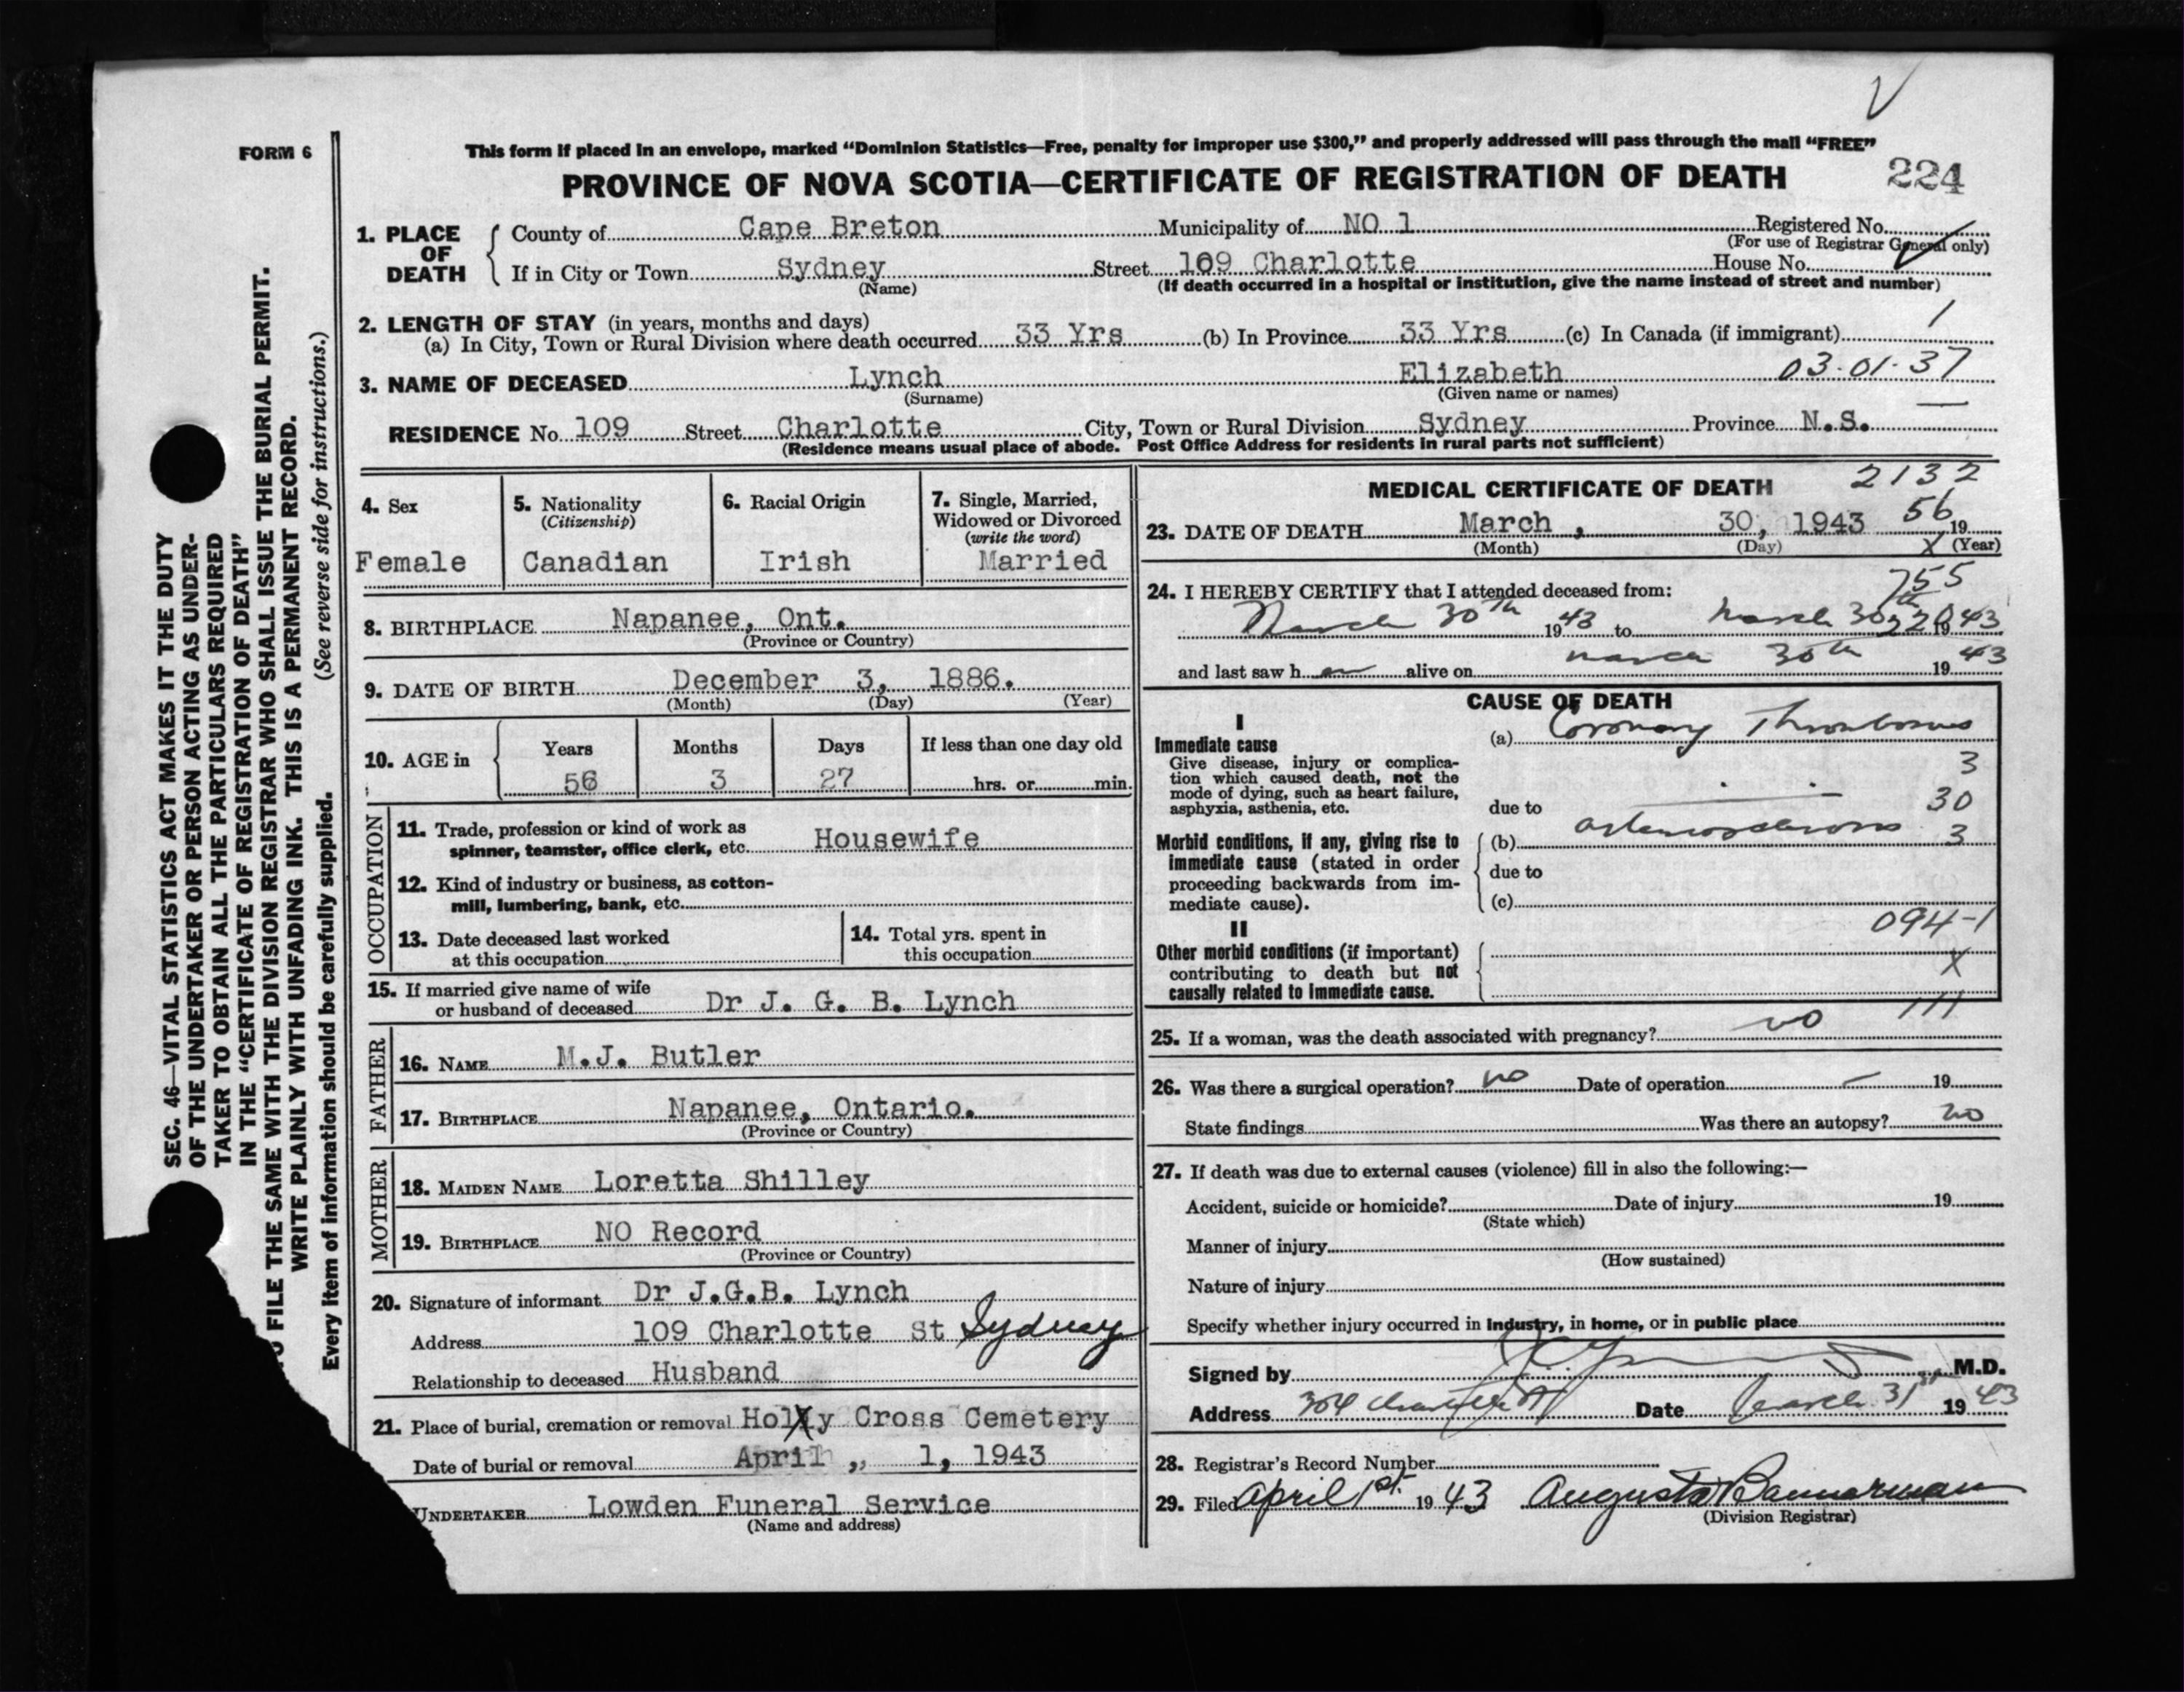 FORM 6
This form if placed in an envelope, marked “Dominion Statistics—Free, penalty for improper use $300,” and properly addressed will pass through the mail “FREE”
PROVINCE OF NOVA SCOTIA—CERTIFICATE OF REGISTRATION OF DEATH 224
1. PLACE OF DEATH
County of Cape Breton Municipality of NO 1 Registered No.
(For use of Registrar General only)
If in City or Town Sydney Street 109 Charlotte House No.
(Name) (If death occurred in a hospital or institution, give the name instead of street and number)
2. LENGTH OF STAY (in years, months and days)
(a) In City, Town or Rural Division where death occurred 33 Yrs (b) In Province 33 Yrs (c) In Canada (if immigrant)
3. NAME OF DECEASED Lynch Elizabeth 03-01-37
(Surname) (Given name or names)
RESIDENCE No. 109 Street Charlotte City, Town or Rural Division Sydney Province N.S.
(Residence means usual place of abode. Post Office Address for residents in rural parts not sufficient)
4. Sex
Female
5. Nationality
(Citizenship)
Canadian
6. Racial Origin
Irish
7. Single, Married,
Widowed or Divorced
(write the word)
Married
8. BIRTHPLACE Napanee, Ont.
(Province or Country)
9. DATE OF BIRTH December 3, 1886.
(Month) (Day) (Year)
10. AGE in Years Months Days If less than one day old
56 3 27 hrs. or min.
OCCUPATION
11. Trade, profession or kind of work as
spinner, teamster, office clerk, etc. Housewife
12. Kind of industry or business, as cotton-
mill, lumbering, bank, etc.
13. Date deceased last worked
at this occupation
14. Total yrs. spent in
this occupation
15. If married give name of wife
or husband of deceased Dr J. G. B. Lynch
FATHER
16. NAME M.J. Butler
17. BIRTHPLACE Napanee, Ontario.
(Province or Country)
MOTHER
18. MAIDEN NAME Loretta Shilley
19. BIRTHPLACE NO Record
(Province or Country)
20. Signature of informant Dr J.G.B. Lynch
Address 109 Charlotte St Sydney
Relationship to deceased Husband
21. Place of burial, cremation or removal Holly Cross Cemetery
Date of burial or removal April ,, 1, 1943
UNDERTAKER Lowden Funeral Service
(Name and address)
MEDICAL CERTIFICATE OF DEATH 2132
23. DATE OF DEATH March , 30, 1943 56 19
(Month) (Day) X (Year)
24. I HEREBY CERTIFY that I attended deceased from: 755
March 30th 1943 to March 30th 1943
and last saw her alive on March 30th 1943
CAUSE OF DEATH
I
Immediate cause
Give disease, injury or complica-
tion which caused death, not the
mode of dying, such as heart failure,
asphyxia, asthenia, etc.
(a) Coronary Thrombosis
3
due to
30
Morbid conditions, if any, giving rise to
immediate cause (stated in order
proceeding backwards from im-
mediate cause).
(b) arteriosclerosis 3
due to
(c)
094-1
II
Other morbid conditions (if important)
contributing to death but not
causally related to immediate cause.
X
111
25. If a woman, was the death associated with pregnancy? no
26. Was there a surgical operation? no Date of operation — 19
State findings Was there an autopsy? no
27. If death was due to external causes (violence) fill in also the following:—
Accident, suicide or homicide? Date of injury 19
(State which)
Manner of injury
(How sustained)
Nature of injury
Specify whether injury occurred in industry, in home, or in public place
Signed by M.D.
Address 304 Charlotte St Date March 31st 1943
28. Registrar's Record Number
29. Filed April 1st. 1943 Augusta Bannerman
(Division Registrar)
SEC. 46—VITAL STATISTICS ACT MAKES IT THE DUTY
OF THE UNDERTAKER OR PERSON ACTING AS UNDER-
TAKER TO OBTAIN ALL THE PARTICULARS REQUIRED
IN THE “CERTIFICATE OF REGISTRATION OF DEATH”
FILE THE SAME WITH THE DIVISION REGISTRAR WHO SHALL ISSUE THE BURIAL PERMIT.
WRITE PLAINLY WITH UNFADING INK. THIS IS A PERMANENT RECORD.
Every item of information should be carefully supplied. (See reverse side for instructions.)